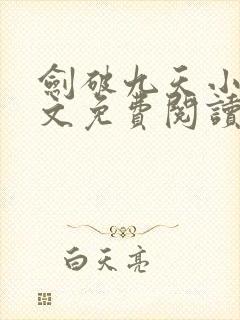 劍破九天小
文免費閱讀
白天亮